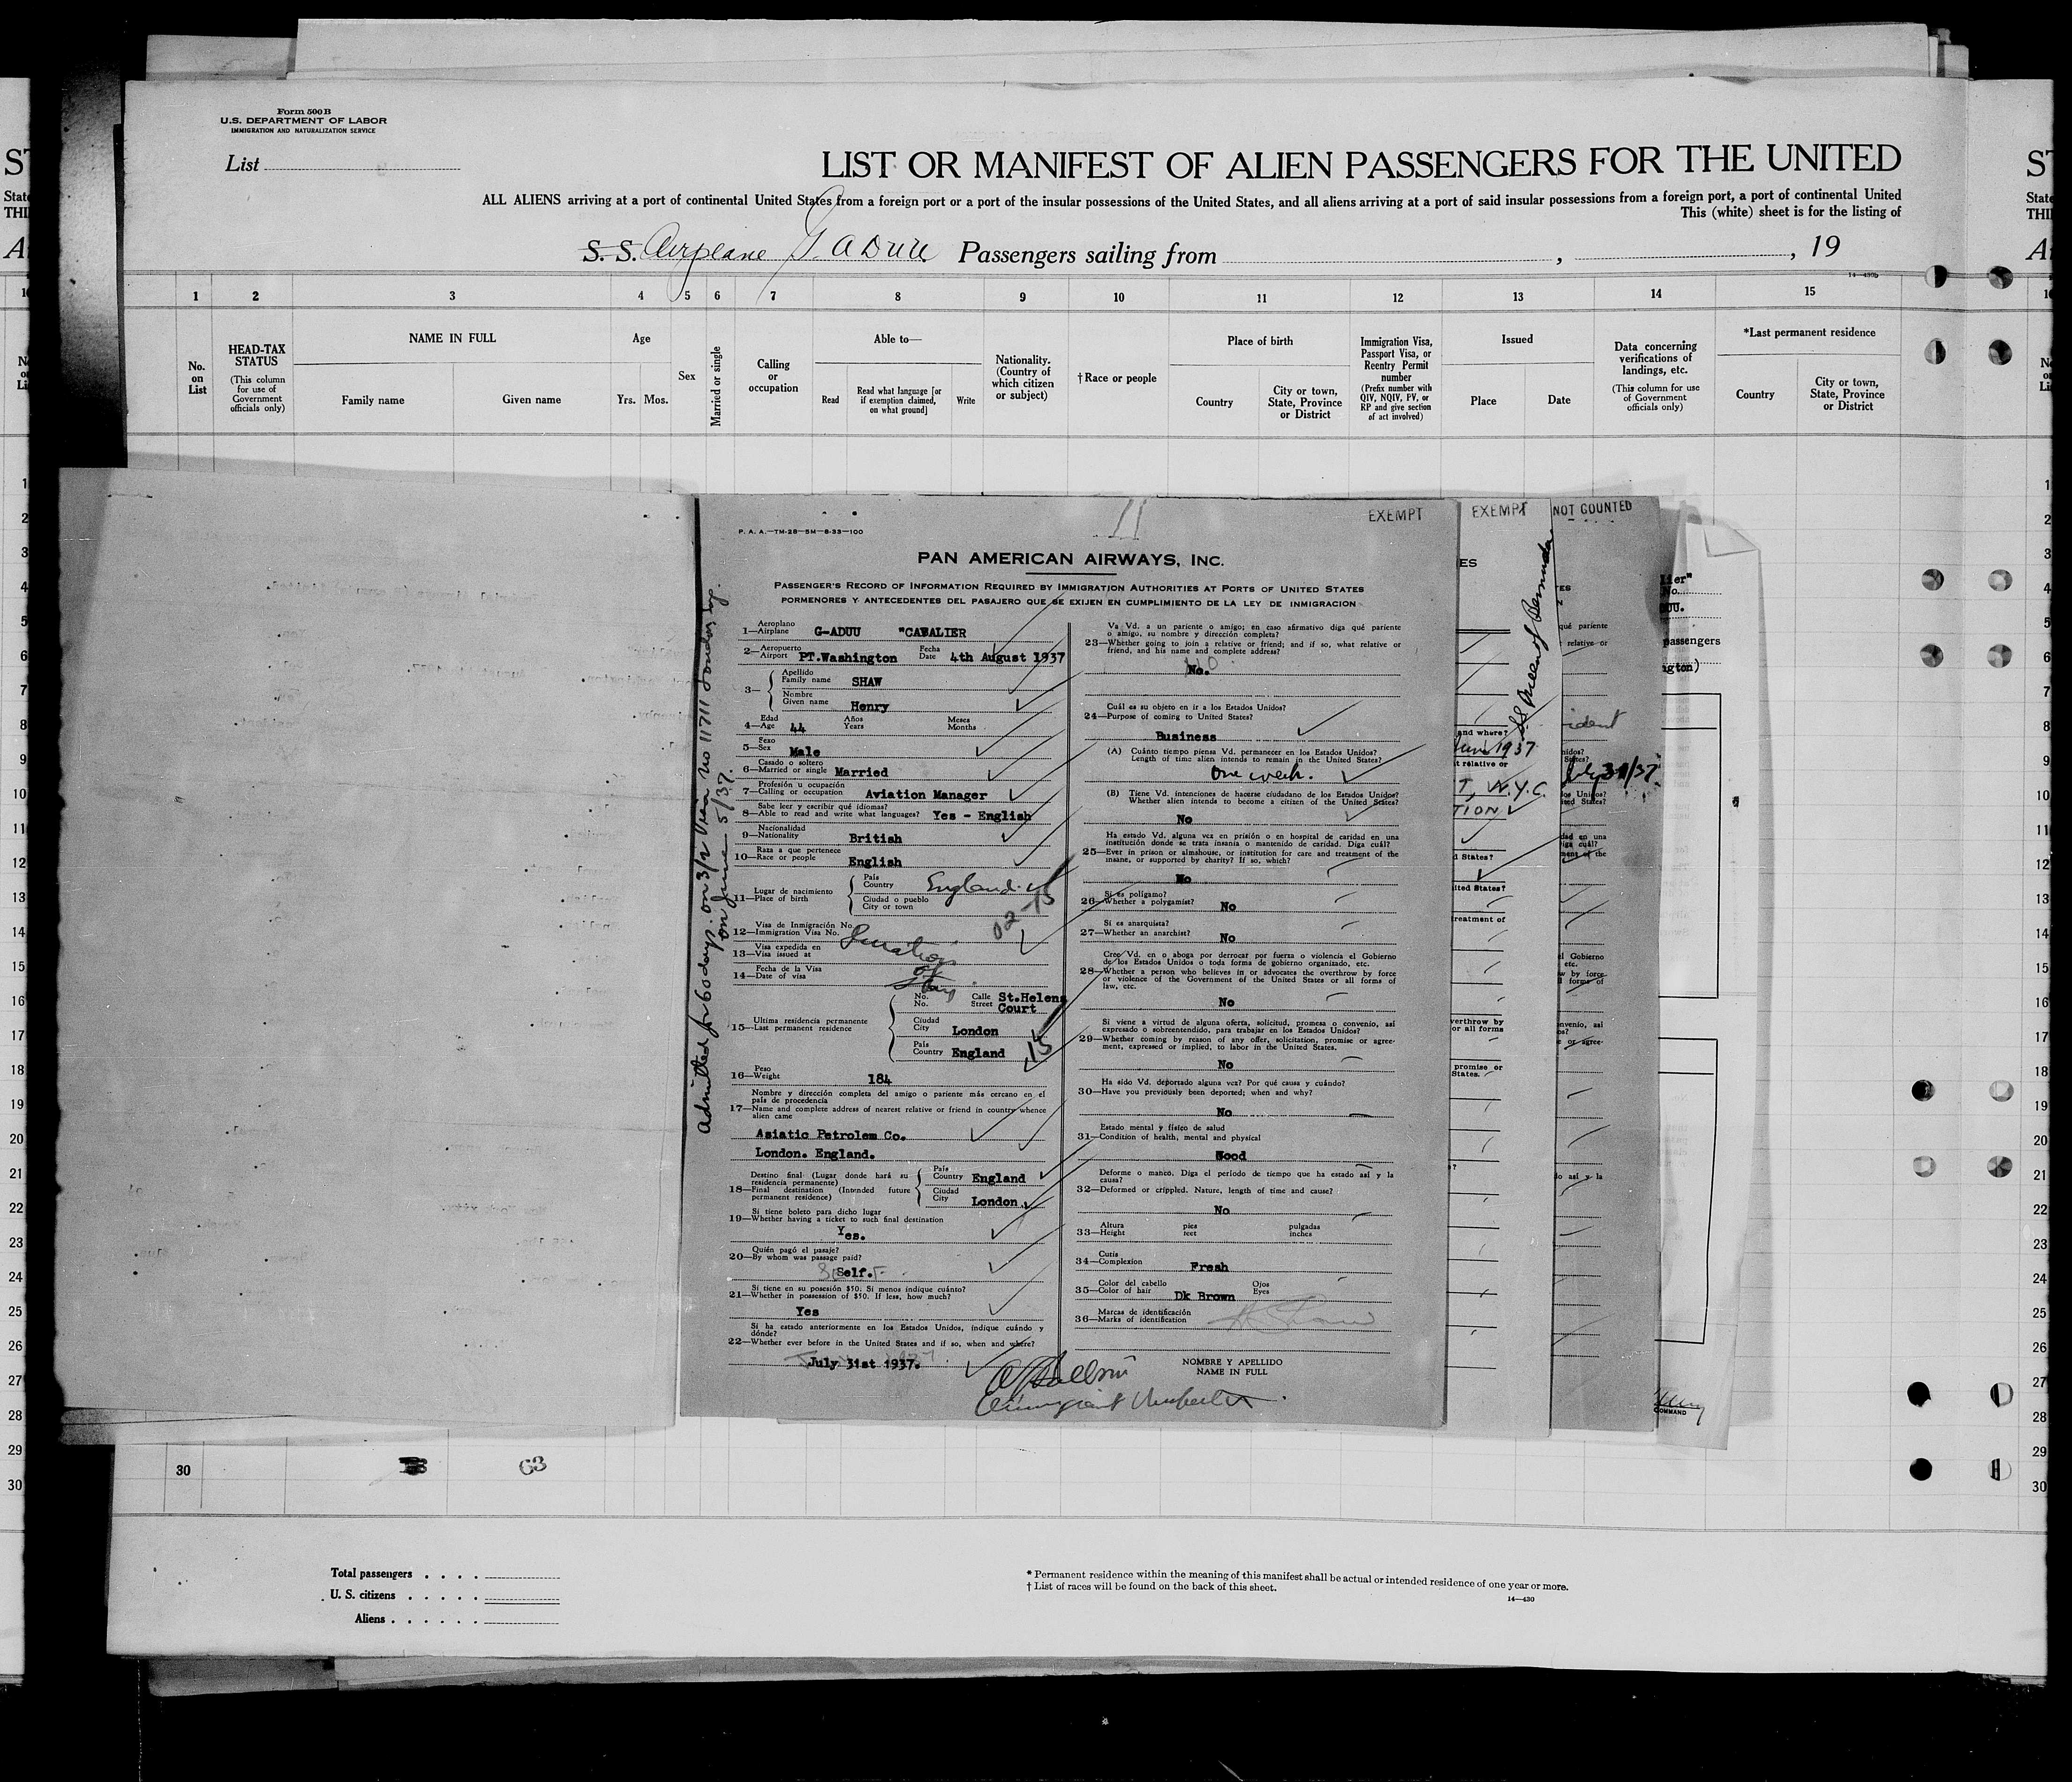 Form 500 B
U.S. DEPARTMENT OF LABOR
IMMIGRATION AND NATURALIZATION SERVICE
List
LIST OR MANIFEST OF ALIEN PASSENGERS FOR THE UNITED
ALL ALIENS arriving at a port of continental United States from a foreign port or a port of the insular possessions of the United States, and all aliens arriving at a port of said insular possessions from a foreign port, a port of continental United
This (white) sheet is for the listing of
S. S. Airplane G. ADUU Passengers sailing from , , 19
14—430b
1 2 3 4 5 6 7 8 9 10 11 12 13 14 15
No. on List
HEAD-TAX STATUS
(This column for use of Government officials only)
NAME IN FULL
Family name
Given name
Age
Yrs. Mos.
Sex
Married or single
Calling or occupation
Able to—
Read
Read what language [or if exemption claimed, on what ground]
Write
Nationality. (Country of which citizen or subject)
† Race or people
Place of birth
Country
City or town, State, Province or District
Immigration Visa, Passport Visa, or Reentry Permit number
(Prefix number with QIV, NQIV, PV, or RP and give section of act involved)
Issued
Place
Date
Data concerning verifications of landings, etc.
(This column for use of Government officials only)
*Last permanent residence
Country
City or town, State, Province or District
P. A. A.—TM-28—5M—8-33—100
11
EXEMPT
PAN AMERICAN AIRWAYS, INC.
PASSENGER'S RECORD OF INFORMATION REQUIRED BY IMMIGRATION AUTHORITIES AT PORTS OF UNITED STATES
PORMENORES Y ANTECEDENTES DEL PASAJERO QUE SE EXIJEN EN CUMPLIMIENTO DE LA LEY DE INMIGRACION
Admitted for 60 days on 3/2 Visa no 11711
on June 5/37.
Aeroplano
1—Airplane G-ADUU "CAVALIER
Aeropuerto Fecha
2—Airport PT.Washington Date 4th August 1937
Apellido
3— Family name SHAW
Nombre
Given name Henry
Edad Años Meses
4—Age 44 Years Months
Sexo
5—Sex Male
Casado o soltero
6—Married or single Married
Profesión u ocupación
7—Calling or occupation Aviation Manager
Sabe leer y escribir qué idiomas?
8—Able to read and write what languages? Yes - English
Nacionalidad
9—Nationality British
Raza a que pertenece
10—Race or people English
Lugar de nacimiento
11—Place of birth
País
Country England
Ciudad o pueblo
City or town
02-15
Visa de Inmigración No.
12—Immigration Visa No. Duration
Visa expedida en
13—Visa issued at of
Fecha de la Visa
14—Date of visa Stay
No. Calle St.Helens
No. Street Court
Ultima residencia permanente
15—Last permanent residence
Ciudad
City London
País
Country England
15
Peso
16—Weight 184
Nombre y dirección completa del amigo o pariente más cercano en el
país de procedencia
17—Name and complete address of nearest relative or friend in country whence
alien came
Asiatic Petrolem Co.
London. England.
Destino final (Lugar donde hará su
residencia permanente)
18—Final destination (Intended future
permanent residence)
País
Country England
Ciudad
City London.
Si tiene boleto para dicho lugar
19—Whether having a ticket to such final destination
Yes.
Quién pagó el pasaje?
20—By whom was passage paid?
Self.
Si tiene en su posesión $50: Si menos indique cuánto?
21—Whether in possession of $50. If less, how much?
Yes
Si ha estado anteriormente en los Estados Unidos, indique cuándo y
dónde?
22—Whether ever before in the United States and if so, when and where?
July 31st 1937.
Va Vd. a un pariente o amigo; en caso afirmativo diga qué pariente
o amigo, su nombre y dirección completa?
23—Whether going to join a relative or friend; and if so, what relative or
friend, and his name and complete address?
No.
Cuál es su objeto en ir a los Estados Unidos?
24—Purpose of coming to United States?
Business
(A) Cuánto tiempo piensa Vd. permanecer en los Estados Unidos?
Length of time alien intends to remain in the United States?
One week.
(B) Tiene Vd. intenciones de hacerse ciudadano de los Estados Unidos?
Whether alien intends to become a citizen of the United States?
No
Ha estado Vd. alguna vez en prisión o en hospital de caridad en una
institución donde se trata insania o mantenido de caridad. Diga cuál?
25—Ever in prison or almshouse, or institution for care and treatment of the
insane, or supported by charity? If so, which?
No
Si es polígamo?
26—Whether a polygamist? No
Si es anarquista?
27—Whether an anarchist? No
Cree Vd. en o aboga por derrocar por fuerza o violencia el Gobierno
de los Estados Unidos o toda forma de gobierno organizado, etc.
28—Whether a person who believes in or advocates the overthrow by force
or violence of the Government of the United States or all forms of
law, etc.
No
Si viene a virtud de alguna oferta, solicitud, promesa o convenio, así
expresado o sobreentendido, para trabajar en los Estados Unidos?
29—Whether coming by reason of any offer, solicitation, promise or agree-
ment, expressed or implied, to labor in the United States.
No
Ha sido Vd. deportado alguna vez? Por qué causa y cuándo?
30—Have you previously been deported; when and why?
No
Estado mental y físico de salud
31—Condition of health, mental and physical
Good
Deforme o manco. Diga el período de tiempo que ha estado así y la
causa?
32—Deformed or crippled. Nature, length of time and cause?
No
Altura pies pulgadas
33—Height feet inches
Cutis
34—Complexion Fresh
Color del cabello Ojos
35—Color of hair Dk Brown Eyes
Marcas de identificación
36—Marks of identification H Shaw
NOMBRE Y APELLIDO
NAME IN FULL
Immigrant Inspector
EXEMPT
S.S. Queen of Bermuda
and where?
June 1937
t relative or
T, N.Y.C.
TION
d States?
ited States?
reatment of
verthrow by
or all forms
promise or
States.
NOT COUNTED
qué pariente
relative or
ident
July 31/37
el Gobierno
etc.
w by force
l forms of
nvenio, así
e or agree-
lo así y la
lier"
No.
passengers
COMMAND
30 63
Total passengers
U. S. citizens
Aliens
* Permanent residence within the meaning of this manifest shall be actual or intended residence of one year or more.
† List of races will be found on the back of this sheet.
14—430